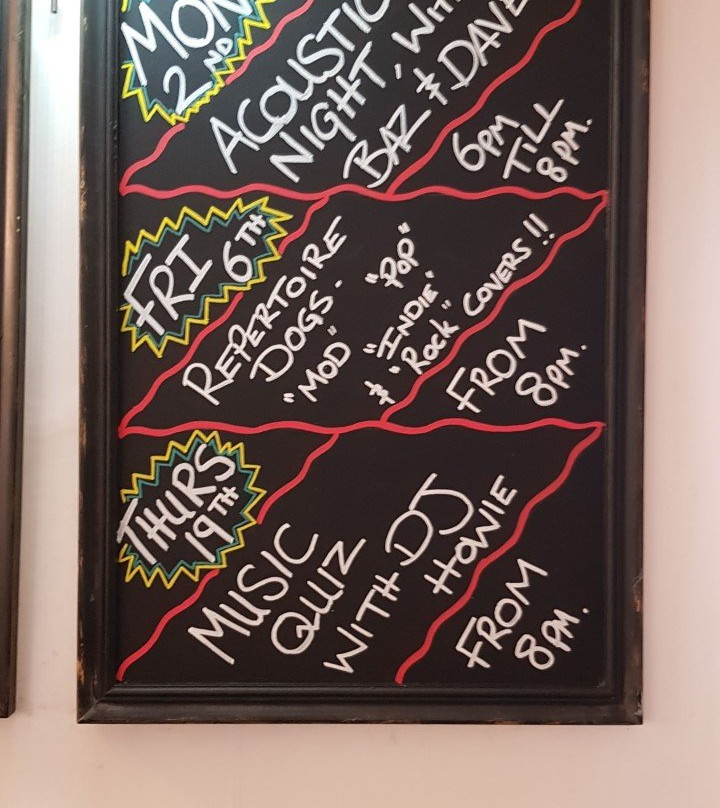 MON
2ND
ACOUSTIC
NIGHT, WITH
BAZ & DAVE
6PM
TILL
8PM.
FRI
6TH
REPERTOIRE
DOGS.
"MOD" "POP"
"INDIE"
& "ROCK" COVERS!!
FROM
8PM.
THURS
19TH
MUSIC
QUIZ
WITH DJ
HOWIE
FROM
8PM.